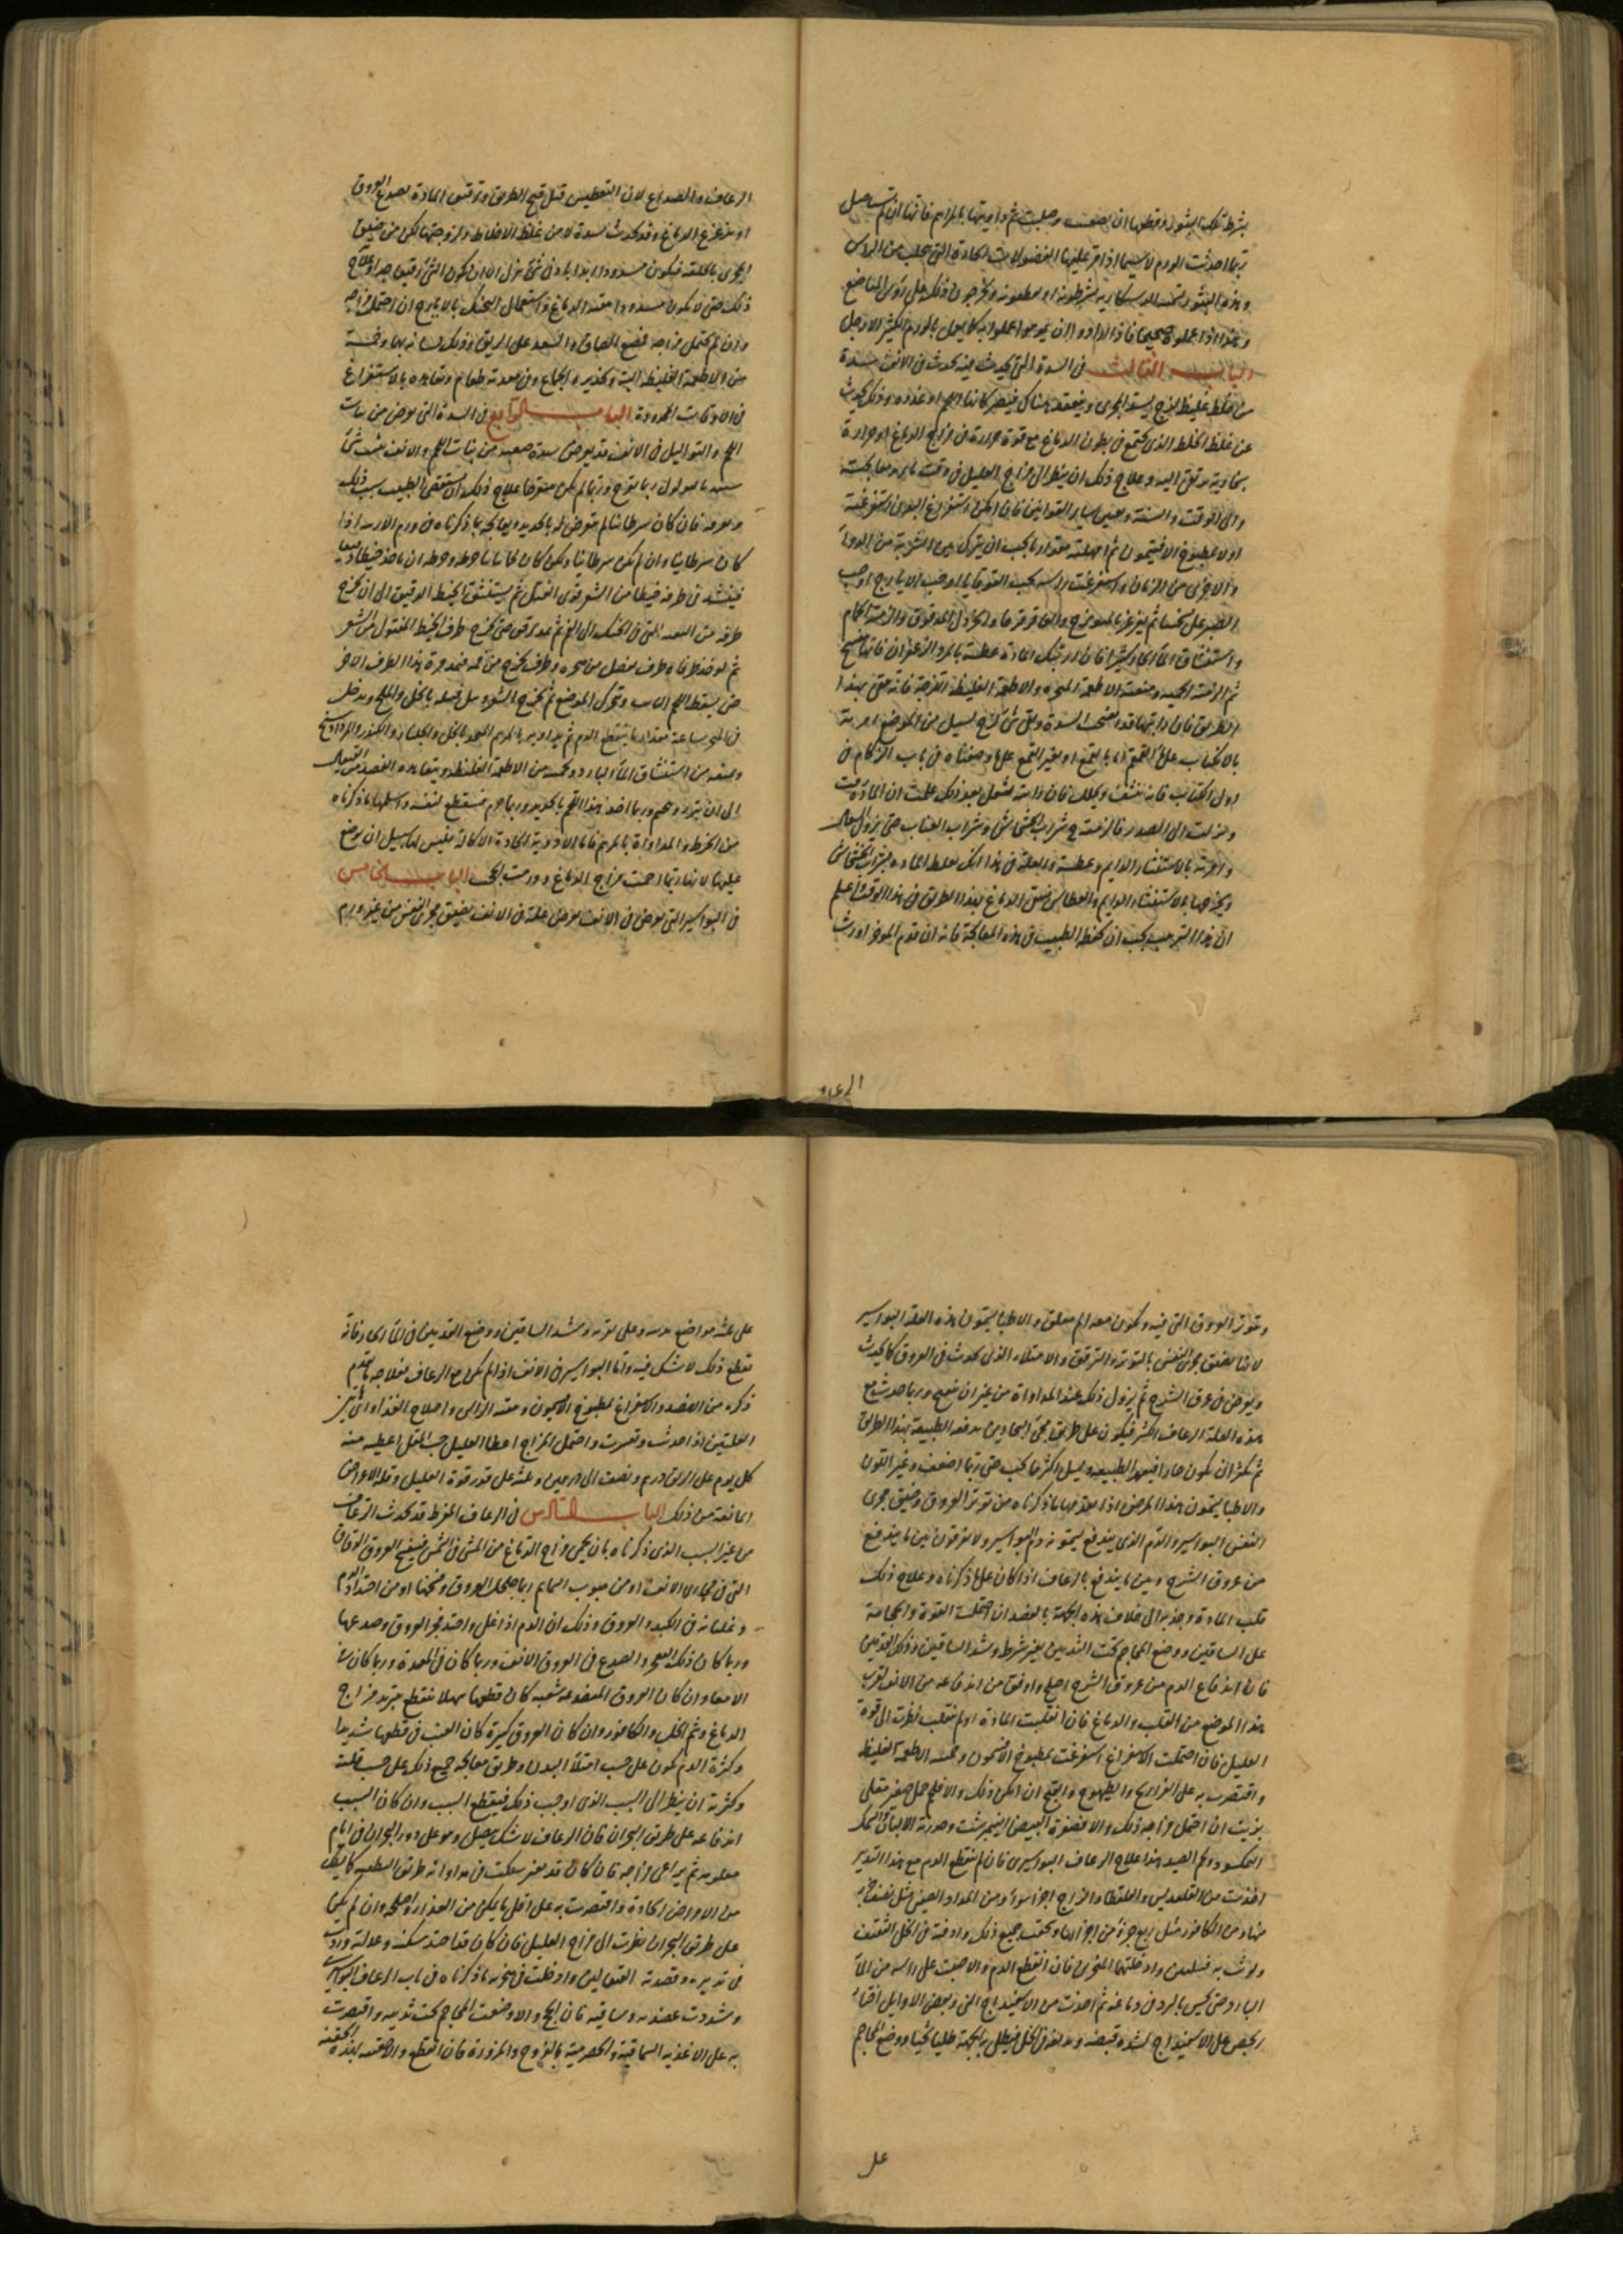 بشرط تلك البثور وقطعها ان صعب وصلبت ثم داويتها بالمراهم فانها ان لم تستاصل
ربما احدثت الورم لا سيما اذا مر عليها الفضولات الحادة التي تجلب من الراس
وهذه البثور تحت
وهذا اذا عملوه صحيحا فاذا ارادوا ان
الباب الثالث في السدة التي تحدث فيه تحدث في الانف سدة
من خلط غليظ لزج يسد المجرى وينعقد هناك فيصير كانها لحم او غدده وذلك يحدث
عن غلظ الخلط الذي يجتمع في بطون الدماغ مع قوة حرارة في مزاج الدماغ او حرارة
بخارية ترتقي اليه وعلاج ذلك ان ينظر الى مزاج العليل في وقت
والى الوقت والسنة وبعض ساير القوانين فان امكن استفراغ البدن استفرغته
اولا بمطبوخ الافتيمون ثم امهلته مقدار ما يجب ان يترك بين الشربة من الدواء
والاخرى من الزمان واستفرغت راسه بحب القوقايا او حب الايارج او حب
الصبر على نسختنا ثم يغرغر بالميويزج والعاقرقرحا والخردل المدقوق والزمته الحمام
واستنشاق الماء الحار كثيرا فان
ثم الزمته الحمية ومنعته الاطعمة المبخرة والاطعمة الغليظة اللزجة فانه متى بهذا
الطريق فان رايتها قد انفتحت السدة وبقى شئ لزج يسيل من الموضع امرته
بالانكباب على القمقمة اما بالقمع او بغير القمع على ما وصفناه في باب الزكام في
اول الكتاب فانه ينشف ويحلل فان رايته يسعل بعد ذلك علمت ان المادة
ونزلت الى الصدر فالزمته شراب الخشخاش وشراب العناب حتى يزول السعال
وامرته بالاستنثار الدايم وعطسه والعلة في هذا انك تغلظ المادة بشراب الخشخاش
ويخرجها بالاستنثار الدايم والعطاس ينقى الدماغ بهذا الطريق في هذا الوقت واعلم
ان هذا الترتيب يجب ان يحفظه الطبيب في هذه المعالجة فانه ان قدم المؤخر اورث
الرعاف
الرعاف والصداع لان التعطيس قبل فتح الطريق وترقيق المادة يصدع العروق
او يزعزع الدماغ وقد تحدث السدة لا من غلظ الاخلاط ولزوجتها لكن من ضيق
المجرى بالخلقة فيكون مسدودا ابدا بادنى شئ ينزل الا ان يكون الشئ رقيق جدا وعلاج
ذلك حتى لا يكون مسدودا تنقية الدماغ واستعمال التحنك بالايارج ان احتمل مزاجه
وان لم يحتمل مزاجه فمضغ المصطكى والسعد على الريق وذلك لسانه بهما وحميته
من الاطعمة الغليظة البتة وتحذيره الجماع وفي معدته طعام وتعاهده بالاستفراغ
في الاوقات المحدودة الباب الرابع في السدة التي تعرض من نبات
اللحم والثواليل في الانف قد يعرض سدة صعبة من نبات اللحم والانف ينبت شئ
شبيه بالثولول ربما تقرح وربما لم يكن متقرحا علاج ذلك ان يستقصى الطبيب سبب ذلك
ويعرفه فان كان سرطانا لم يتعرض له بالحديد ويعالجه بما ذكرناه في ورم الارنبة اذا
كان سرطانيا وان لم يكن سرطانيا ولكن كان لحما نابتا
فيشد في طرفه خيطا من الشعر قوى الفتل ثم يستنشق الخيط الرقيق الى ان يخرج
طرفه من الثقبة التي في الحنك الى الفم ثم يمد برفق حتى يخرج طرف الخيط المفتول من الشعر
ثم يوخذ طرفاه طرف يفضل من منخره وطرف يخرج من فمه فيمد مرة هذا الطرف والاخر
حتى يسقط اللحم النابت وتحرك الموضع ثم يخرج الشعر
في المنخر ساعة مقدار ما ينقطع الدم ثم يداويه بالمرهم المتخذ بالخل والجلنار والكندر والمرداسنج
ويمنعه من استنشاق الماء البارد ويحميه من الاطعمة الغليظة ويتعاهده الفصد من القيفال
الى ان يبرو ويلحم وربما اخذ هذا اللحم بالحديد وربما خرم فيقطع بنفسه واسهلها ما ذكرناه
من الخرط والمداواة بالمرهم فاما الادوية الحادة الاكالة فليس لها سبيل ان يوضع
عليها لانها ربما احمت مزاج الدماغ وورمت الحجب الباب الخامس
في البواسير التي تعرض في الانف تعرض علة في الانف بضيق مجرى النفس من غير ورم
وتتوتر العروق التي فيه ويكون معه الم مقلق والاطبا يسمون هذه العلة البواسير
لانها تضيق مجرى النفس بالتوتر والتمرق والامتلاء الذي يحدث في العروق كما يحدث
ويعرض في عرق الشرج ثم يزول ذلك عند المداواة من غير ان ينفتح وربما حدث مع
هذه العلة الرعاف الكثير فيكون على طريق مجئ البحارين يدفعه الطبيعة بهذا الطريق
ثم يكثر ان يكون حارا فيبهر الطبيعة ويسيل اكثر مما يجب حتى ربما اضعف وغير اللون
والاطبا يسمون هذا المرض اذا تقدمها ما ذكرناه من توتر العروق وضيق مجرى
النفس البواسير والدم الذي يندفع يسمونه دم البواسير ولا يفرقون بين ما يندفع
من عروق الشرج وبين ما يندفع بالرعاف اذا كان على ما ذكرناه وعلاج ذلك
قلب المادة وجذبه الى خلاف هذه الجهة بالفصد ان احتملت القوة والحجامة
على الساقين ووضع المحاجم تحت الثديين بغير شرط وشد الساقين وذلك القدمين
فان اندفاع الدم من عروق الشرج اصلح واوفق من اندفاعه من الانف لقرب
هذا الموضع من القلب والدماغ فان انقلبت المادة او لم تنقلب نظرت الى قوة
العليل فان احتملت الاستفراغ استفرغت بمطبوخ الافتيمون وحميته الاطعمة الغليظة
واقتصرت به على الفراريج والطيهوج والقبج ان امكن ذلك والا فلحم حمل صغير مقلى
بزيت ان احتمل مزاجه ذلك والا فصفرة البيض النيمبرشت وحذرته الالبان والسمك
المكسود ولحم الصيد هذا علاج الرعاف البواسيري فان لم ينقطع الدم مع هذا التدبير
اخذت من القلقديس والقلقطار والزاج اجزا سواء ومن المداد الصيني مثل نصف جزء
منها ومن الكافور مثل ربع جزء من اجزائها وسحقت جميع ذلك وادفته في الخل الثقيف
ولوثت به فتيلتين وادخلتهما المنخرين فان انقطع الدم والا صببت على راسه من الماء
البارد حتى يحس بالبرد في دماغه ثم اخذت من الاسفيداج
على الاسفيداج لشدة قبضه ويداف في الخل فيطلى به الجبهة طليا ثخينا ووضع المحاجم
على
على ثلثة مواضع
يقطع ذلك لا شك فيه واما البواسير في الانف اذا لم يكن مع الرعاف فعلاجه ما تقدم
ذكره من الفصد والاستفراغ بمطبوخ الافتيمون وتنقية الراس واصلاح الغذاء واى
العلتين اذا حدثت وتعسرت واحتمل المزاج اعطا العليل حب المقل اعطيه منه
كل يوم على الريق درهم ونصف الى درهمين وثلثه على قدر قوة العليل وقلة الاعراض
المانعة من ذلك الباب السادس في الرعاف المفرط قد يحدث الرعاف
من غير السبب الذي ذكرناه بان يحمى مزاج الدماغ من المشى في الشمس فيفتح العروق الرقاق
التي في مجارى الانف او من هبوب السمايم
وغليانه في الكبد والعروق وذلك ان الدم اذا غلى واحتد فجر العروق وصدعها
وربما كان ذلك التفجر والصدع في العروق الانف وربما كان في المعدة وربما كان في
الامعا وان كان العروق المتصدعة شعبه كان قطعها سهلا فينقطع بتبريد مزاج
الدماغ وشم الخل والكافور وان كان العروق كبيرة كان العنت في قطعها شديدا
وكثرة الدم يكون على حسب امتلاء البدن وطريق معالجة جميع ذلك على حسب قلته
وكثرته ان ينظر الى السبب الذي اوجب ذلك فيقطع السبب وان كان السبب
اندفاعه على طريق البحران فان الرعاف لا شك يحصل وهو على دور البحران في ايام
معلومة ثم يراعى مزاجه فان كان قد تغير سلكت في مداواته طريق التطفية كما يطفى
من الامراض الحادة واقتصرت به على اقل ما يمكن من الغذاء واصلحه وان لم يكن
على طريق البحران نظرت الى مزاج العليل فان كان
في تدبيره وفصدته القيفالين وادخلت في منخريه ما ذكرناه في باب الرعاف البواسيري
وشددت عضديه وساقيه فان انجح والا وضعت المحاجم تحت ثدييه واقتصرت
به على الاغذية السماقية والحصرمية بالفروج والمزورة فان انقطع والا حقنته بهذه الحقنة